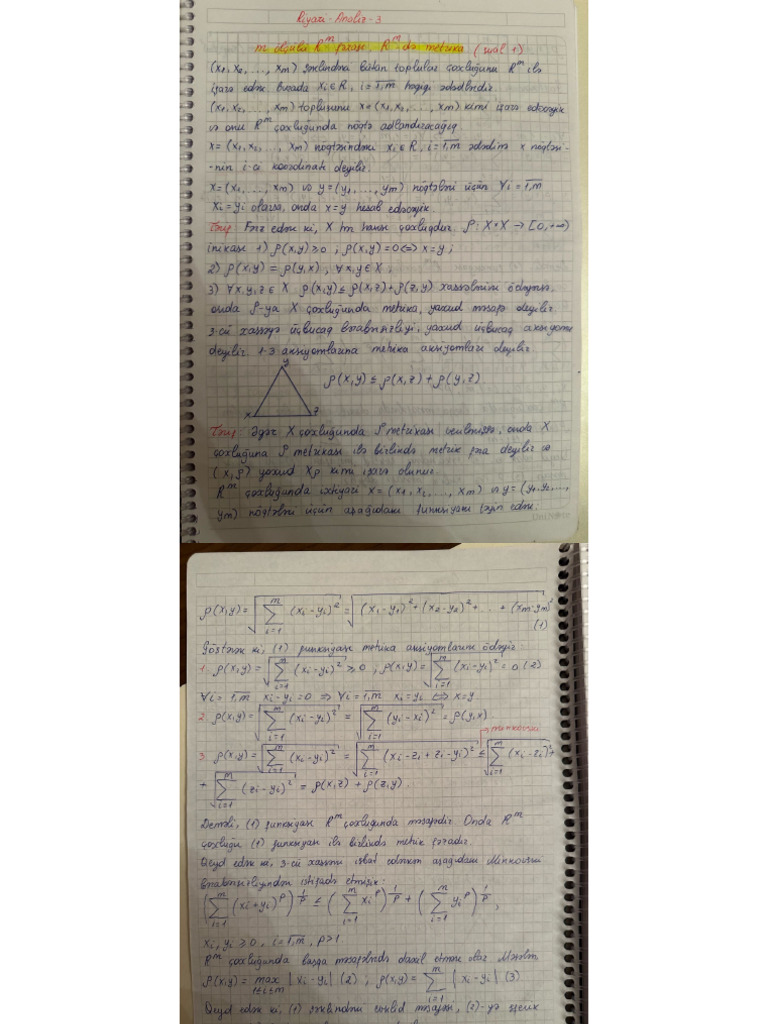 Riyazi-Analiz-3
m ölçülü R^m fəzası. R^m-də metrika (sual 1)
(x₁, x₂, ..., xₘ) şəklində bütün toplular çoxluğunu R^m ilə
işarə edək burada xᵢ∈R, i=1,m̅ həqiqi ədədlərdir.
(x₁, x₂, ..., xₘ) toplusunu x=(x₁, x₂, ..., xₘ) kimi işarə edəcəyik
və onu R^m çoxluğunda nöqtə adlandıracağıq.
x=(x₁, x₂, ..., xₘ) nöqtəsindəki xᵢ∈R, i=1,m̅ ədədinə x nöqtəsi-
-nin i-ci koordinatı deyilir.
x=(x₁, ..., xₘ) və y=(y₁, ..., yₘ) nöqtələri üçün ∀i=1,m̅
xᵢ=yᵢ olarsa, onda x=y hesab edəcəyik.
Tərif Fərz edək ki, X hər hansı çoxluqdur. ρ: X×X→[0,+∞)
inikası 1) ρ(x,y)≥0 ; ρ(x,y)=0⇔x=y ;
2) ρ(x,y)=ρ(y,x), ∀x,y∈X ;
3) ∀x,y,z∈X ρ(x,y)≤ρ(x,z)+ρ(z,y) xassələrini ödəyirsə,
onda ρ-ya X çoxluğunda metrika, yaxud məsafə deyilir.
3-cü xassəyə üçbucaq bərabərsizliyi, yaxud üçbucaq aksiyomu
deyilir. 1-3 aksiyomlarına metrika aksiyomları deyilir.
y
ρ(x,y)≤ρ(x,z)+ρ(y,z)
x z
Tərif: Əgər X çoxluğunda ρ metrikası verilmişsə, onda X
çoxluğuna ρ metrikası ilə birlikdə metrik fəza deyilir və
(X,ρ) yaxud Xρ kimi işarə olunur.
R^m çoxluğunda ixtiyari x=(x₁, x₂, ..., xₘ) və y=(y₁, y₂, ...,
yₘ) nöqtələri üçün aşağıdakı funksiyanı təyin edək:
ρ(x,y)=√(∑_{i=1}^{m}(xᵢ-yᵢ)²)=√((x₁-y₁)²+(x₂-y₂)²+...+(xₘ-yₘ)²)
(1)
Göstərək ki, (1) funksiyası metrika aksiyomlarını ödəyir:
1. ρ(x,y)=√(∑_{i=1}^{m}(xᵢ-yᵢ)²)≥0 ; ρ(x,y)=√(∑_{i=1}^{m}(xᵢ-yᵢ)²)=0 (2)
∀i=1,m̅ xᵢ-yᵢ=0 ⇒ ∀i=1,m̅ xᵢ=yᵢ ⇔ x=y
2. ρ(x,y)=√(∑_{i=1}^{m}(xᵢ-yᵢ)²)=√(∑_{i=1}^{m}(yᵢ-xᵢ)²)=ρ(y,x)
minkovski
3. ρ(x,y)=√(∑_{i=1}^{m}(xᵢ-yᵢ)²)=√(∑_{i=1}^{m}(xᵢ-zᵢ+zᵢ-yᵢ)²)≤√(∑_{i=1}^{m}(xᵢ-zᵢ)²)+
+√(∑_{i=1}^{m}(zᵢ-yᵢ)²)=ρ(x,z)+ρ(z,y).
Deməli, (1) funksiyası R^m çoxluğunda məsafədir. Onda R^m
çoxluğu (1) funksiyası ilə birlikdə metrik fəzadır.
Qeyd edək ki, 3-cü xassəni isbat edərkən aşağıdakı Minkovski
bərabərsizliyindən istifadə etmişik:
(∑_{i=1}^{m}(xᵢ+yᵢ)^p)^{1/p}≤(∑_{i=1}^{m}xᵢ^p)^{1/p}+(∑_{i=1}^{m}yᵢ^p)^{1/p},
xᵢ,yᵢ≥0, i=1,m̅, p>1
R^m çoxluğunda başqa məsafələrdə daxil etmək olar. Məsələn
ρ(x,y)=max_{1≤i≤m}|xᵢ-yᵢ| (2) ; ρ(x,y)=∑_{i=1}^{m}|xᵢ-yᵢ| (3)
Qeyd edək ki, (1) şəklindəki evklid məsafəsi, (2)-yə